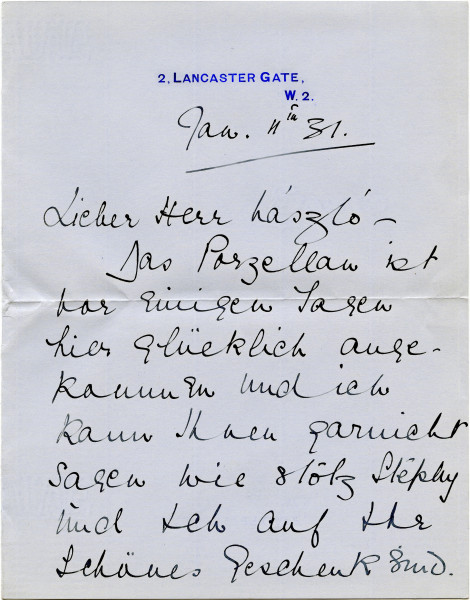 2, LANCASTER GATE,
W. 2.
Jan. 11th 31.
Lieber Herr László –
Das Porzellan ist
vor einigen Tagen
hier glücklich ange-
kommen und ich
kann Ihnen garnicht
sagen wie stolz Stephy
und ich auf Ihr
schönes Geschenk sind.